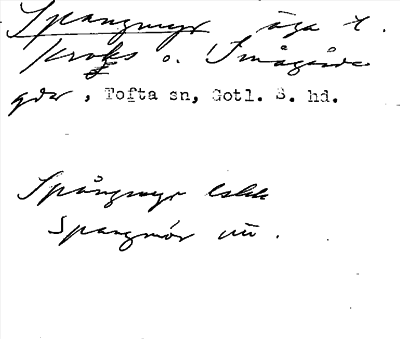 Spangmyr äga t.
Kroks o. Smågårda
gdar, Tofta sn, Gotl. S. hd.
Spångmyr
Spangmör